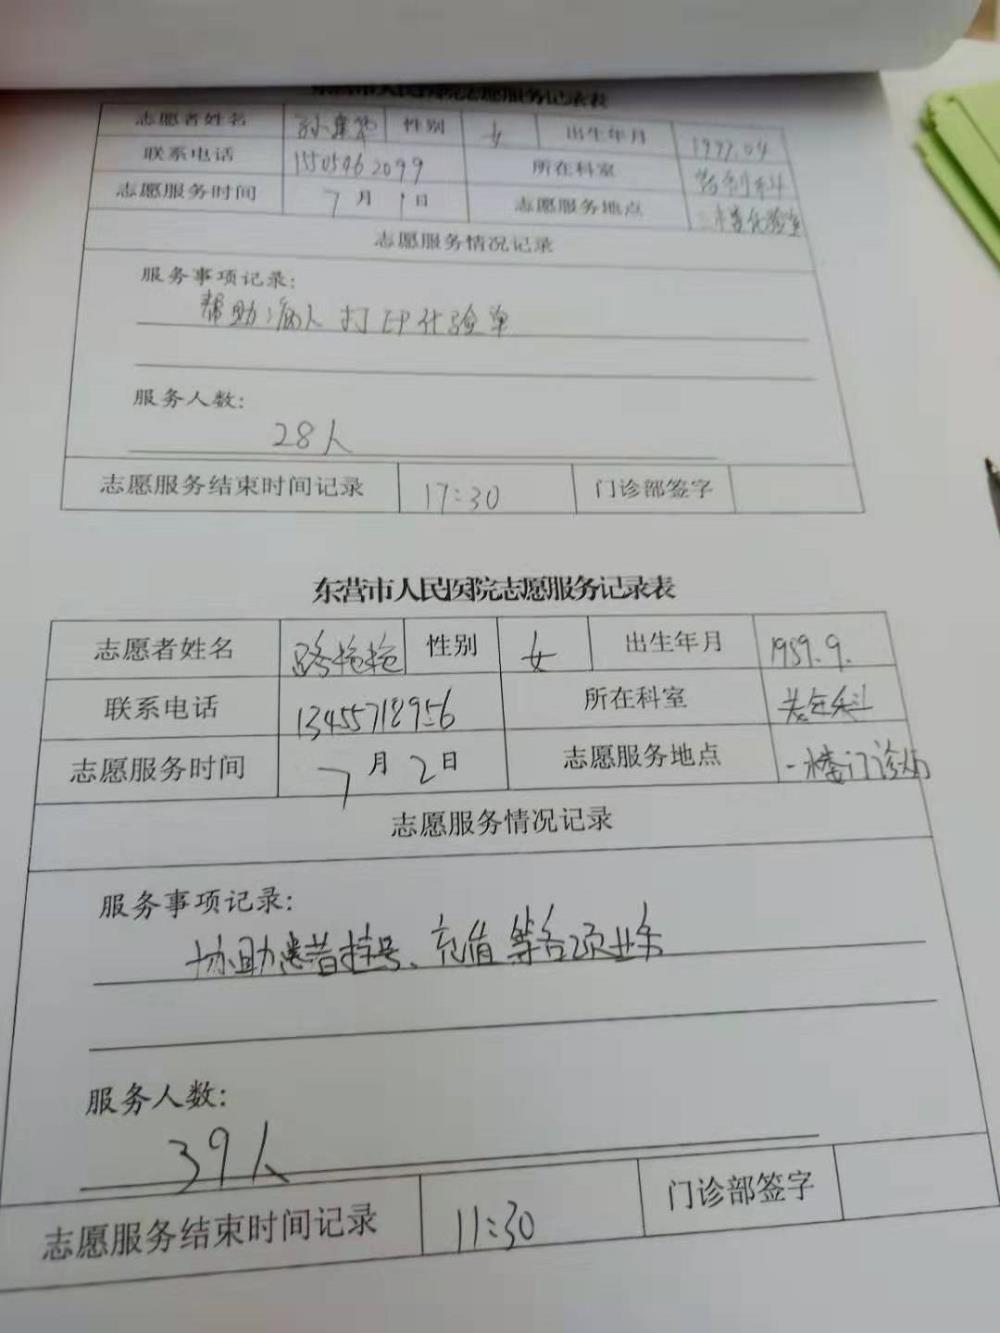 东营市人民医院志愿服务记录表
志愿者姓名 孙 性别 女 出生年月 1997.04
联系电话 所在科室 药剂科
志愿服务时间 7月1日 志愿服务地点 二楼化验室
志愿服务情况记录
服务事项记录:
帮助病人打印化验单
服务人数:
28人
志愿服务结束时间记录 17:30 门诊部签字
东营市人民医院志愿服务记录表
志愿者姓名 路艳艳 性别 女 出生年月 1989.9.
联系电话 13455718956 所在科室
志愿服务时间 7月2日 志愿服务地点 一楼门诊
志愿服务情况记录
服务事项记录:
协助患者挂号、充值等各项业务
服务人数:
39人
志愿服务结束时间记录 11:30 门诊部签字